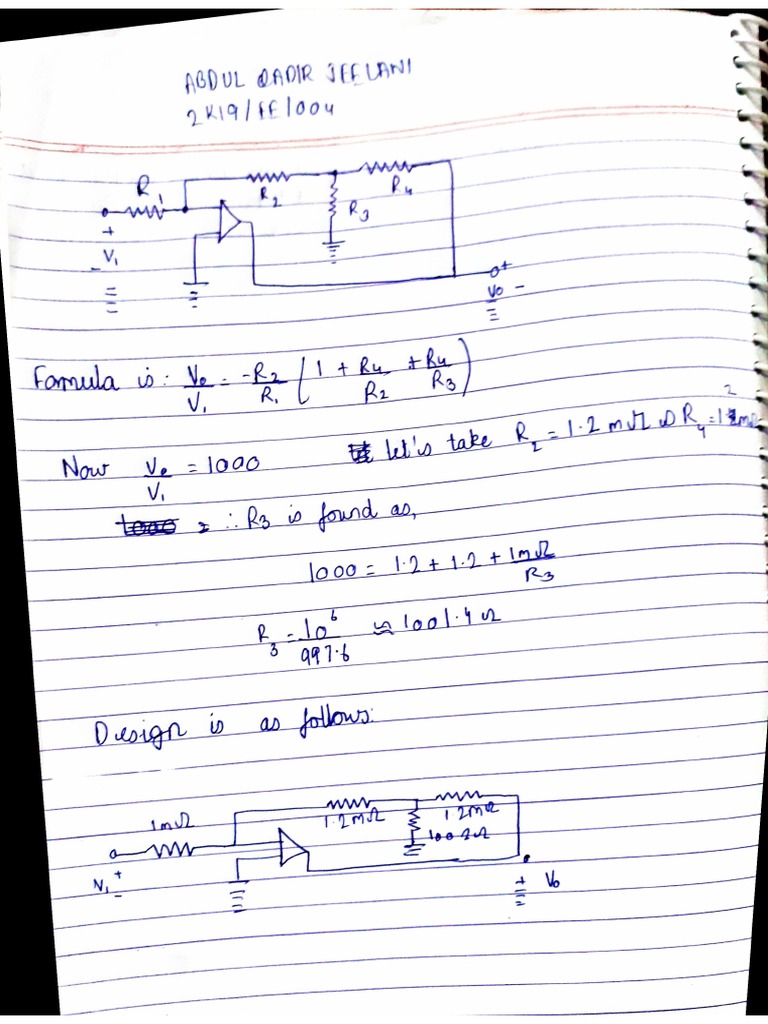 ABDUL QADIR JEELANI
2K19/EE/004
R1
R2
R4
R3
+
V1
-
+
Vo -
Formula is: Vo/V1 = -R2/R1 (1 + R4/R2 + R4/R3)
Now Vo/V1 = 1000 let's take R2 = 1.2 mΩ
∴ R3 is found as,
1000 = 1.2 + 1.2 + 1mΩ/R3
R3 = 10^6/997.6 ≈ 1001.4 Ω
Design is as follows:
1mΩ
1.2mΩ
1.2mΩ
V1 +
-
+
Vo